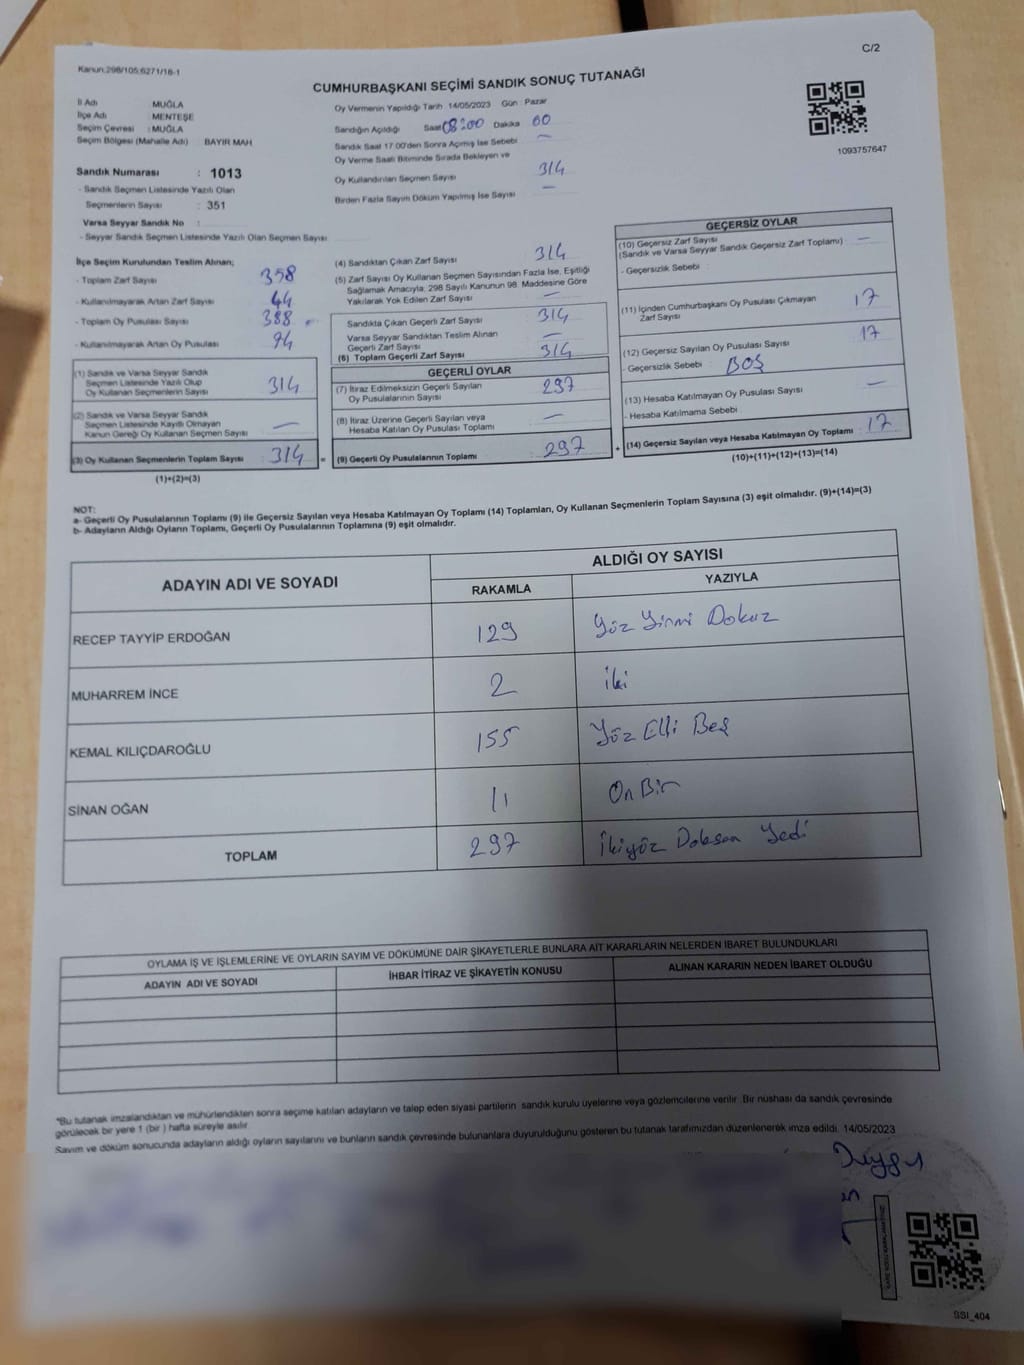 C/2
Kanun:298/105;6271/18-1
CUMHURBAŞKANI SEÇİMİ SANDIK SONUÇ TUTANAĞI
İl Adı : MUĞLA
İlçe Adı : MENTEŞE
Seçim Çevresi : MUĞLA
Seçim Bölgesi (Mahalle Adı) BAYIR MAH
Sandık Numarası : 1013
- Sandık Seçmen Listesinde Yazılı Olan
Seçmenlerin Sayısı : 351
Varsa Seyyar Sandık No :
- Seyyar Sandık Seçmen Listesinde Yazılı Olan Seçmen Sayısı
Oy Vermenin Yapıldığı Tarih : 14/05/2023 Gün : Pazar
Sandığın Açıldığı Saat 08:00 Dakika 00
Sandık Saat 17:00'den Sonra Açımış İse Sebebi —
Oy Verme Saati Bitiminde Sırada Bekleyen ve
Oy Kullandırılan Seçmen Sayısı 314
Birden Fazla Sayım Döküm Yapılmış İse Sayısı —
1093757647
İlçe Seçim Kurulundan Teslim Alınan;
- Toplam Zarf Sayısı 358
- Kullanılmayarak Artan Zarf Sayısı 44
- Toplam Oy Pusulası Sayısı 388
- Kullanılmayarak Artan Oy Pusulası 94
(1) Sandık ve Varsa Seyyar Sandık
Seçmen Listesinde Yazılı Olup
Oy Kullanan Seçmenlerin Sayısı 314
(2) Sandık ve Varsa Seyyar Sandık
Seçmen Listesinde Kayıtlı Olmayan
Kanun Gereği Oy Kullanan Seçmen Sayısı —
(3) Oy Kullanan Seçmenlerin Toplam Sayısı 314 =
(1)+(2)=(3)
(4) Sandıktan Çıkan Zarf Sayısı 314
(5) Zarf Sayısı Oy Kullanan Seçmen Sayısından Fazla İse, Eşitliği
Sağlamak Amacıyla, 298 Sayılı Kanunun 98. Maddesine Göre
Yakılarak Yok Edilen Zarf Sayısı —
Sandıkta Çıkan Geçerli Zarf Sayısı 314
Varsa Seyyar Sandıktan Teslim Alınan
Geçerli Zarf Sayısı —
(6) Toplam Geçerli Zarf Sayısı 314
GEÇERLİ OYLAR
(7) İtiraz Edilmeksizin Geçerli Sayılan
Oy Pusulalarının Sayısı 297
(8) İtiraz Üzerine Geçerli Sayılan veya
Hesaba Katılan Oy Pusulası Toplamı —
(9) Geçerli Oy Pusulalarının Toplamı 297 +
GEÇERSİZ OYLAR
(10) Geçersiz Zarf Sayısı
(Sandık ve Varsa Seyyar Sandık Geçersiz Zarf Toplamı) —
- Geçersizlik Sebebi :
(11) İçinden Cumhurbaşkanı Oy Pusulası Çıkmayan
Zarf Sayısı 17
(12) Geçersiz Sayılan Oy Pusulası Sayısı 17
- Geçersizlik Sebebi : BOŞ
(13) Hesaba Katılmayan Oy Pusulası Sayısı —
- Hesaba Katılmama Sebebi
(14) Geçersiz Sayılan veya Hesaba Katılmayan Oy Toplamı 17
(10)+(11)+(12)+(13)=(14)
NOT:
a- Geçerli Oy Pusulalarının Toplamı (9) ile Geçersiz Sayılan veya Hesaba Katılmayan Oy Toplamı (14) Toplamları, Oy Kullanan Seçmenlerin Toplam Sayısına (3) eşit olmalıdır. (9)+(14)=(3)
b- Adayların Aldığı Oyların Toplamı, Geçerli Oy Pusulalarının Toplamına (9) eşit olmalıdır.
ADAYIN ADI VE SOYADI
ALDIĞI OY SAYISI
RAKAMLA YAZIYLA
RECEP TAYYİP ERDOĞAN 129 Yüz Yirmi Dokuz
MUHARREM İNCE 2 İki
KEMAL KILIÇDAROĞLU 155 Yüz Elli Beş
SİNAN OĞAN 11 On Bir
TOPLAM 297 İkiyüz Doksan Yedi
OYLAMA İŞ VE İŞLEMLERİNE VE OYLARIN SAYIM VE DÖKÜMÜNE DAİR ŞİKAYETLERLE BUNLARA AİT KARARLARIN NELERDEN İBARET BULUNDUKLARI
ADAYIN ADI VE SOYADI İHBAR İTİRAZ VE ŞİKAYETİN KONUSU ALINAN KARARIN NEDEN İBARET OLDUĞU
*Bu tutanak imzalandıktan ve mühürlendikten sonra seçime katılan adayların ve talep eden siyasi partilerin sandık kurulu üyelerine veya gözlemcilerine verilir. Bir nüshası da sandık çevresinde
görülecek bir yere 1 (bir ) hafta süreyle asılır.
Sayım ve döküm sonucunda adayların aldığı oyların sayılarını ve bunların sandık çevresinde bulunanlara duyurulduğunu gösteren bu tutanak tarafımızdan düzenlenerek imza edildi. 14/05/2023
SSI_404